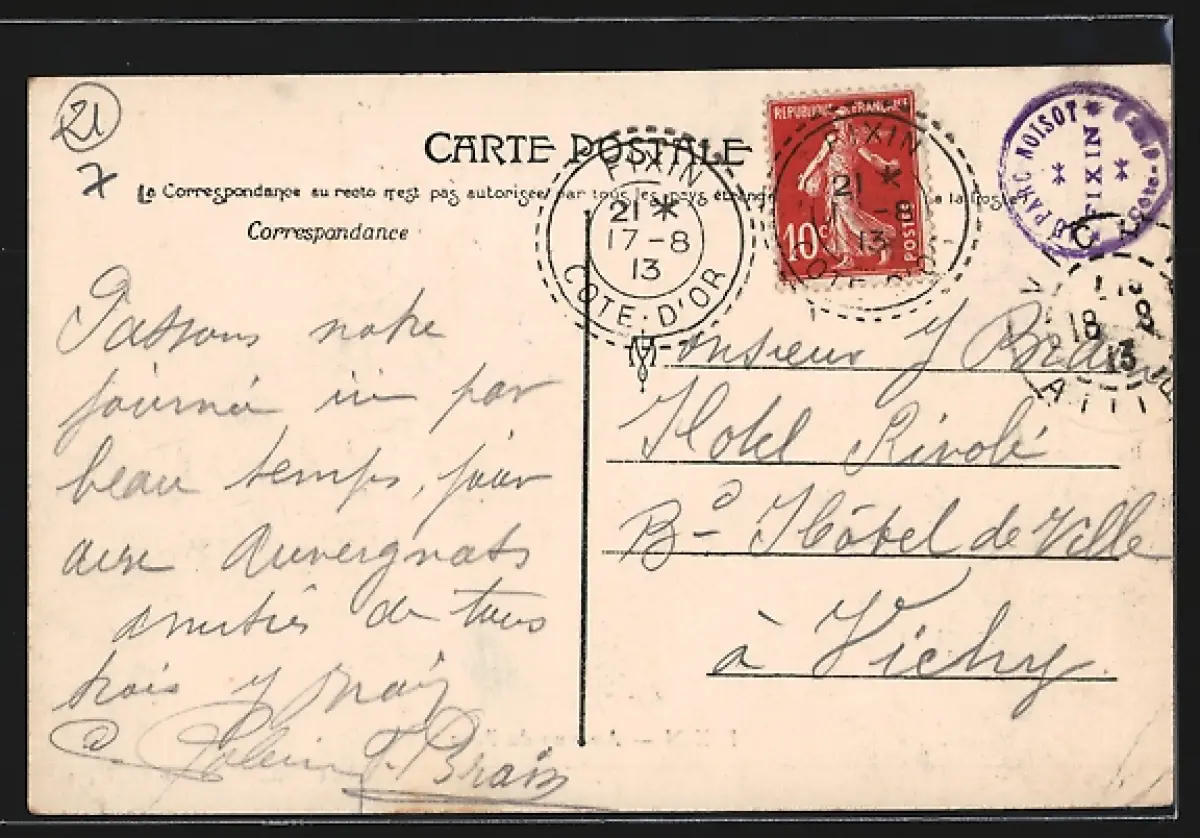 21
7
CARTE POSTALE
La Correspondance au recto n'est pas autorisée par tous les pays étran
Correspondance
FIXIN
21 *
17-8
13
COTE-D'OR
REPUBLIQUE FRANÇAISE
10c
POSTES
FIXIN
21 *
17 -8
13
DU PARC NOISOT
FIXIN
18 8
13
Passons notre
journée ici par
beau temps, pour
Auvergnats
amitiés de tous
trois
Brais
Monsieur
Hotel Rivoli
Bd Hôtel de Ville
à Vichy.